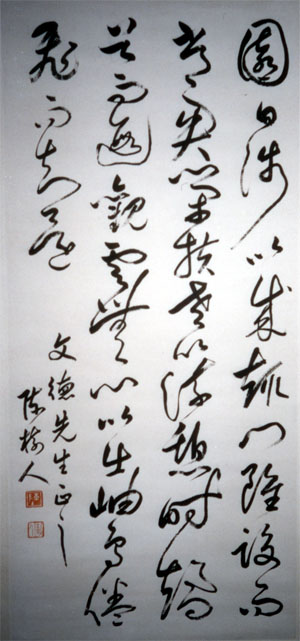 園日涉以成趣門雖設而
常關策扶老以流憩時矯
首而遐觀雲無心以出岫鳥倦
飛而知還
文德先生正之
陳樹人